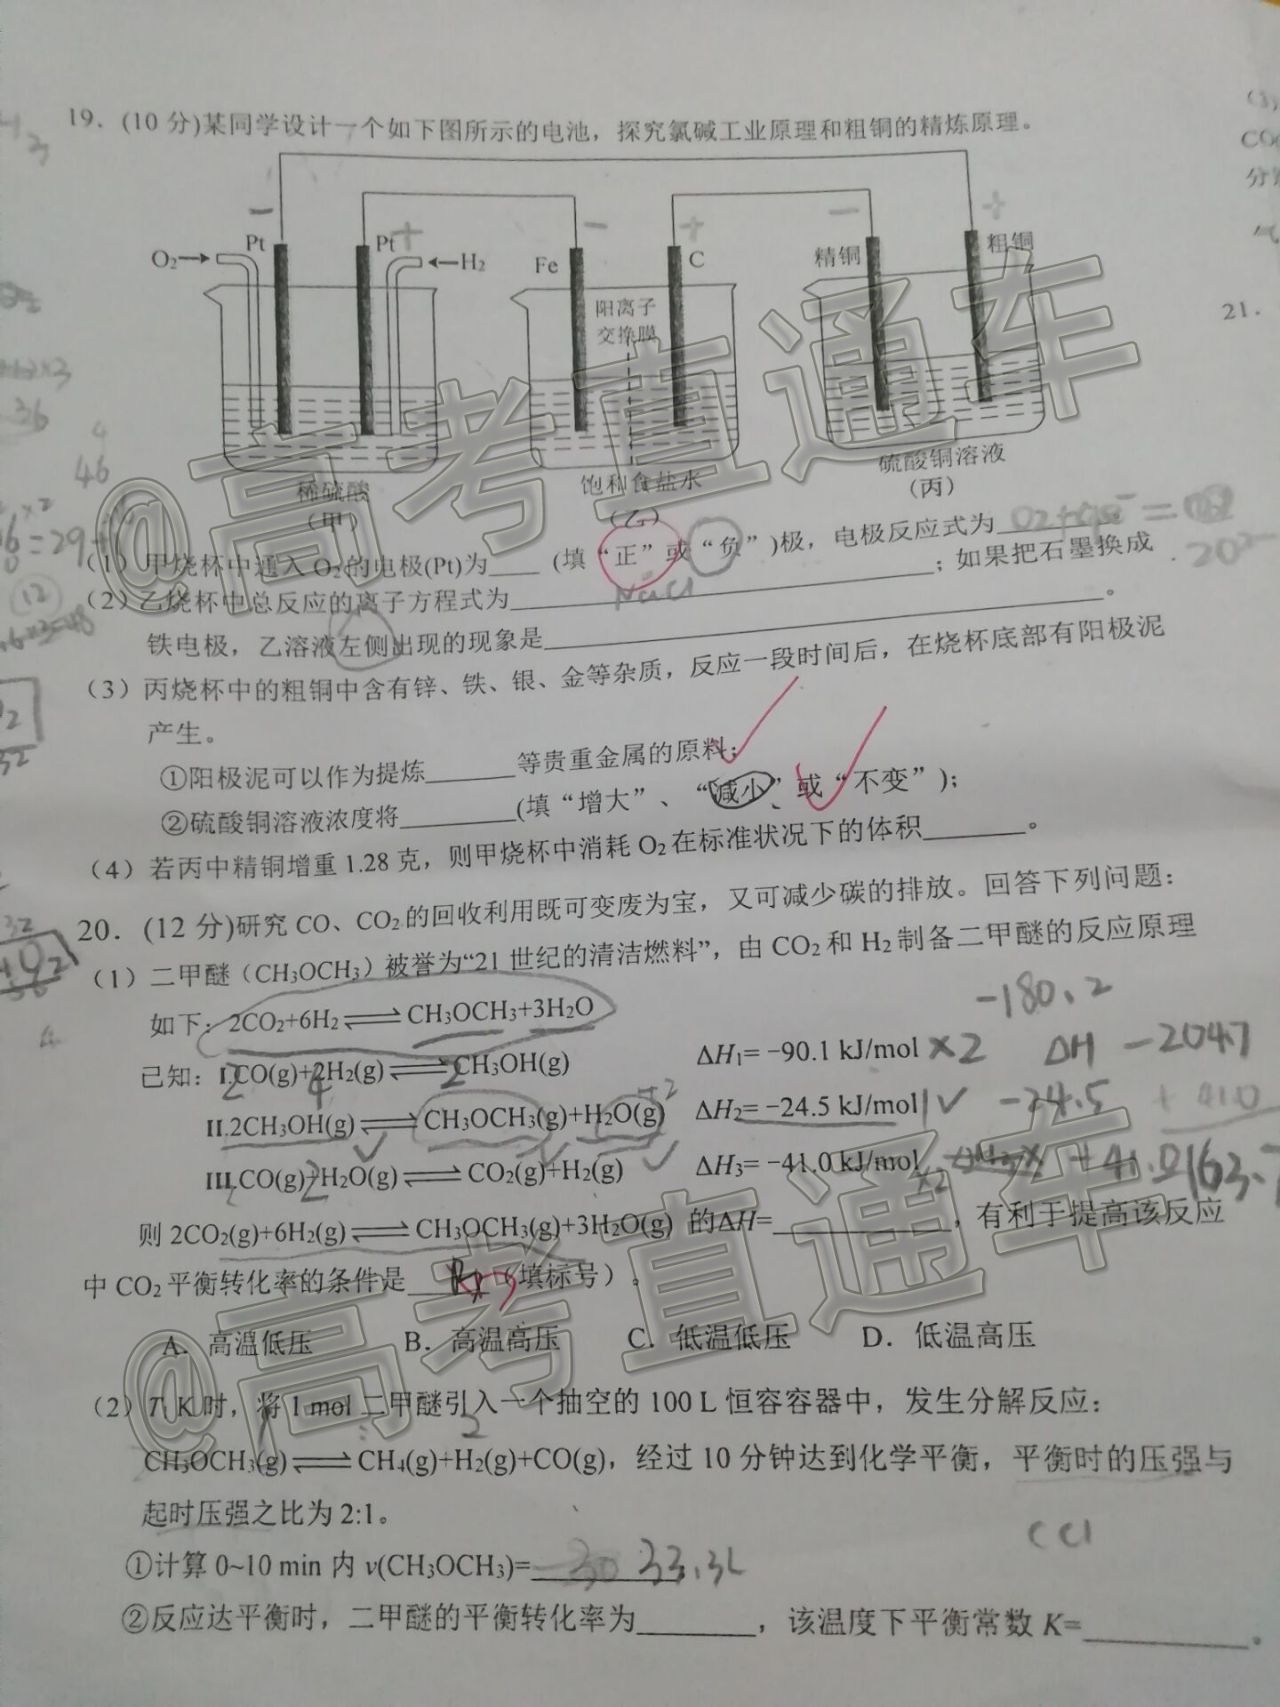 19．(10 分)某同学设计一个如下图所示的电池，探究氯碱工业原理和粗铜的精炼原理。
－ ＋ － ＋ － ＋
O₂ Pt Pt H₂ Fe C 精铜 粗铜
阳离子
交换膜
稀硫酸 饱和食盐水 硫酸铜溶液
（甲） （乙） （丙）
(1) 甲烧杯中通入 O₂的电极(Pt)为____ (填“正”或“负”)极，电极反应式为________。
(2) 乙烧杯中总反应的离子方程式为________；如果把石墨换成
NaCl
铁电极，乙溶液左侧出现的现象是________。
(3) 丙烧杯中的粗铜中含有锌、铁、银、金等杂质，反应一段时间后，在烧杯底部有阳极泥
产生。
①阳极泥可以作为提炼________等贵重金属的原料；
②硫酸铜溶液浓度将________(填“增大”、“减小”或“不变”)；
(4) 若丙中精铜增重 1.28 克，则甲烧杯中消耗 O₂在标准状况下的体积________。
20．(12 分)研究 CO、CO₂的回收利用既可变废为宝，又可减少碳的排放。回答下列问题：
(1) 二甲醚（CH₃OCH₃）被誉为“21 世纪的清洁燃料”，由 CO₂和 H₂制备二甲醚的反应原理
如下：2CO₂+6H₂⇌CH₃OCH₃+3H₂O
-180.2
已知：I.CO(g)+2H₂(g)⇌CH₃OH(g) ΔH₁= -90.1 kJ/mol ×2 ΔH -204.7
II.2CH₃OH(g)⇌CH₃OCH₃(g)+H₂O(g) ΔH₂= -24.5 kJ/mol -24.5 +41.0
III.CO(g)+H₂O(g)⇌CO₂(g)+H₂(g) ΔH₃= -41.0 kJ/mol
则 2CO₂(g)+6H₂(g)⇌CH₃OCH₃(g)+3H₂O(g) 的ΔH=________，有利于提高该反应
中 CO₂平衡转化率的条件是________（填标号）。
A．高温低压 B．高温高压 C．低温低压 D．低温高压
(2) T₁K 时，将 1 mol 二甲醚引入一个抽空的 100 L 恒容容器中，发生分解反应：
CH₃OCH₃(g)⇌CH₄(g)+H₂(g)+CO(g)，经过 10 分钟达到化学平衡，平衡时的压强与
起时压强之比为 2:1。
①计算 0~10 min 内 v(CH₃OCH₃)=________
②反应达平衡时，二甲醚的平衡转化率为________，该温度下平衡常数 K=________。
21．